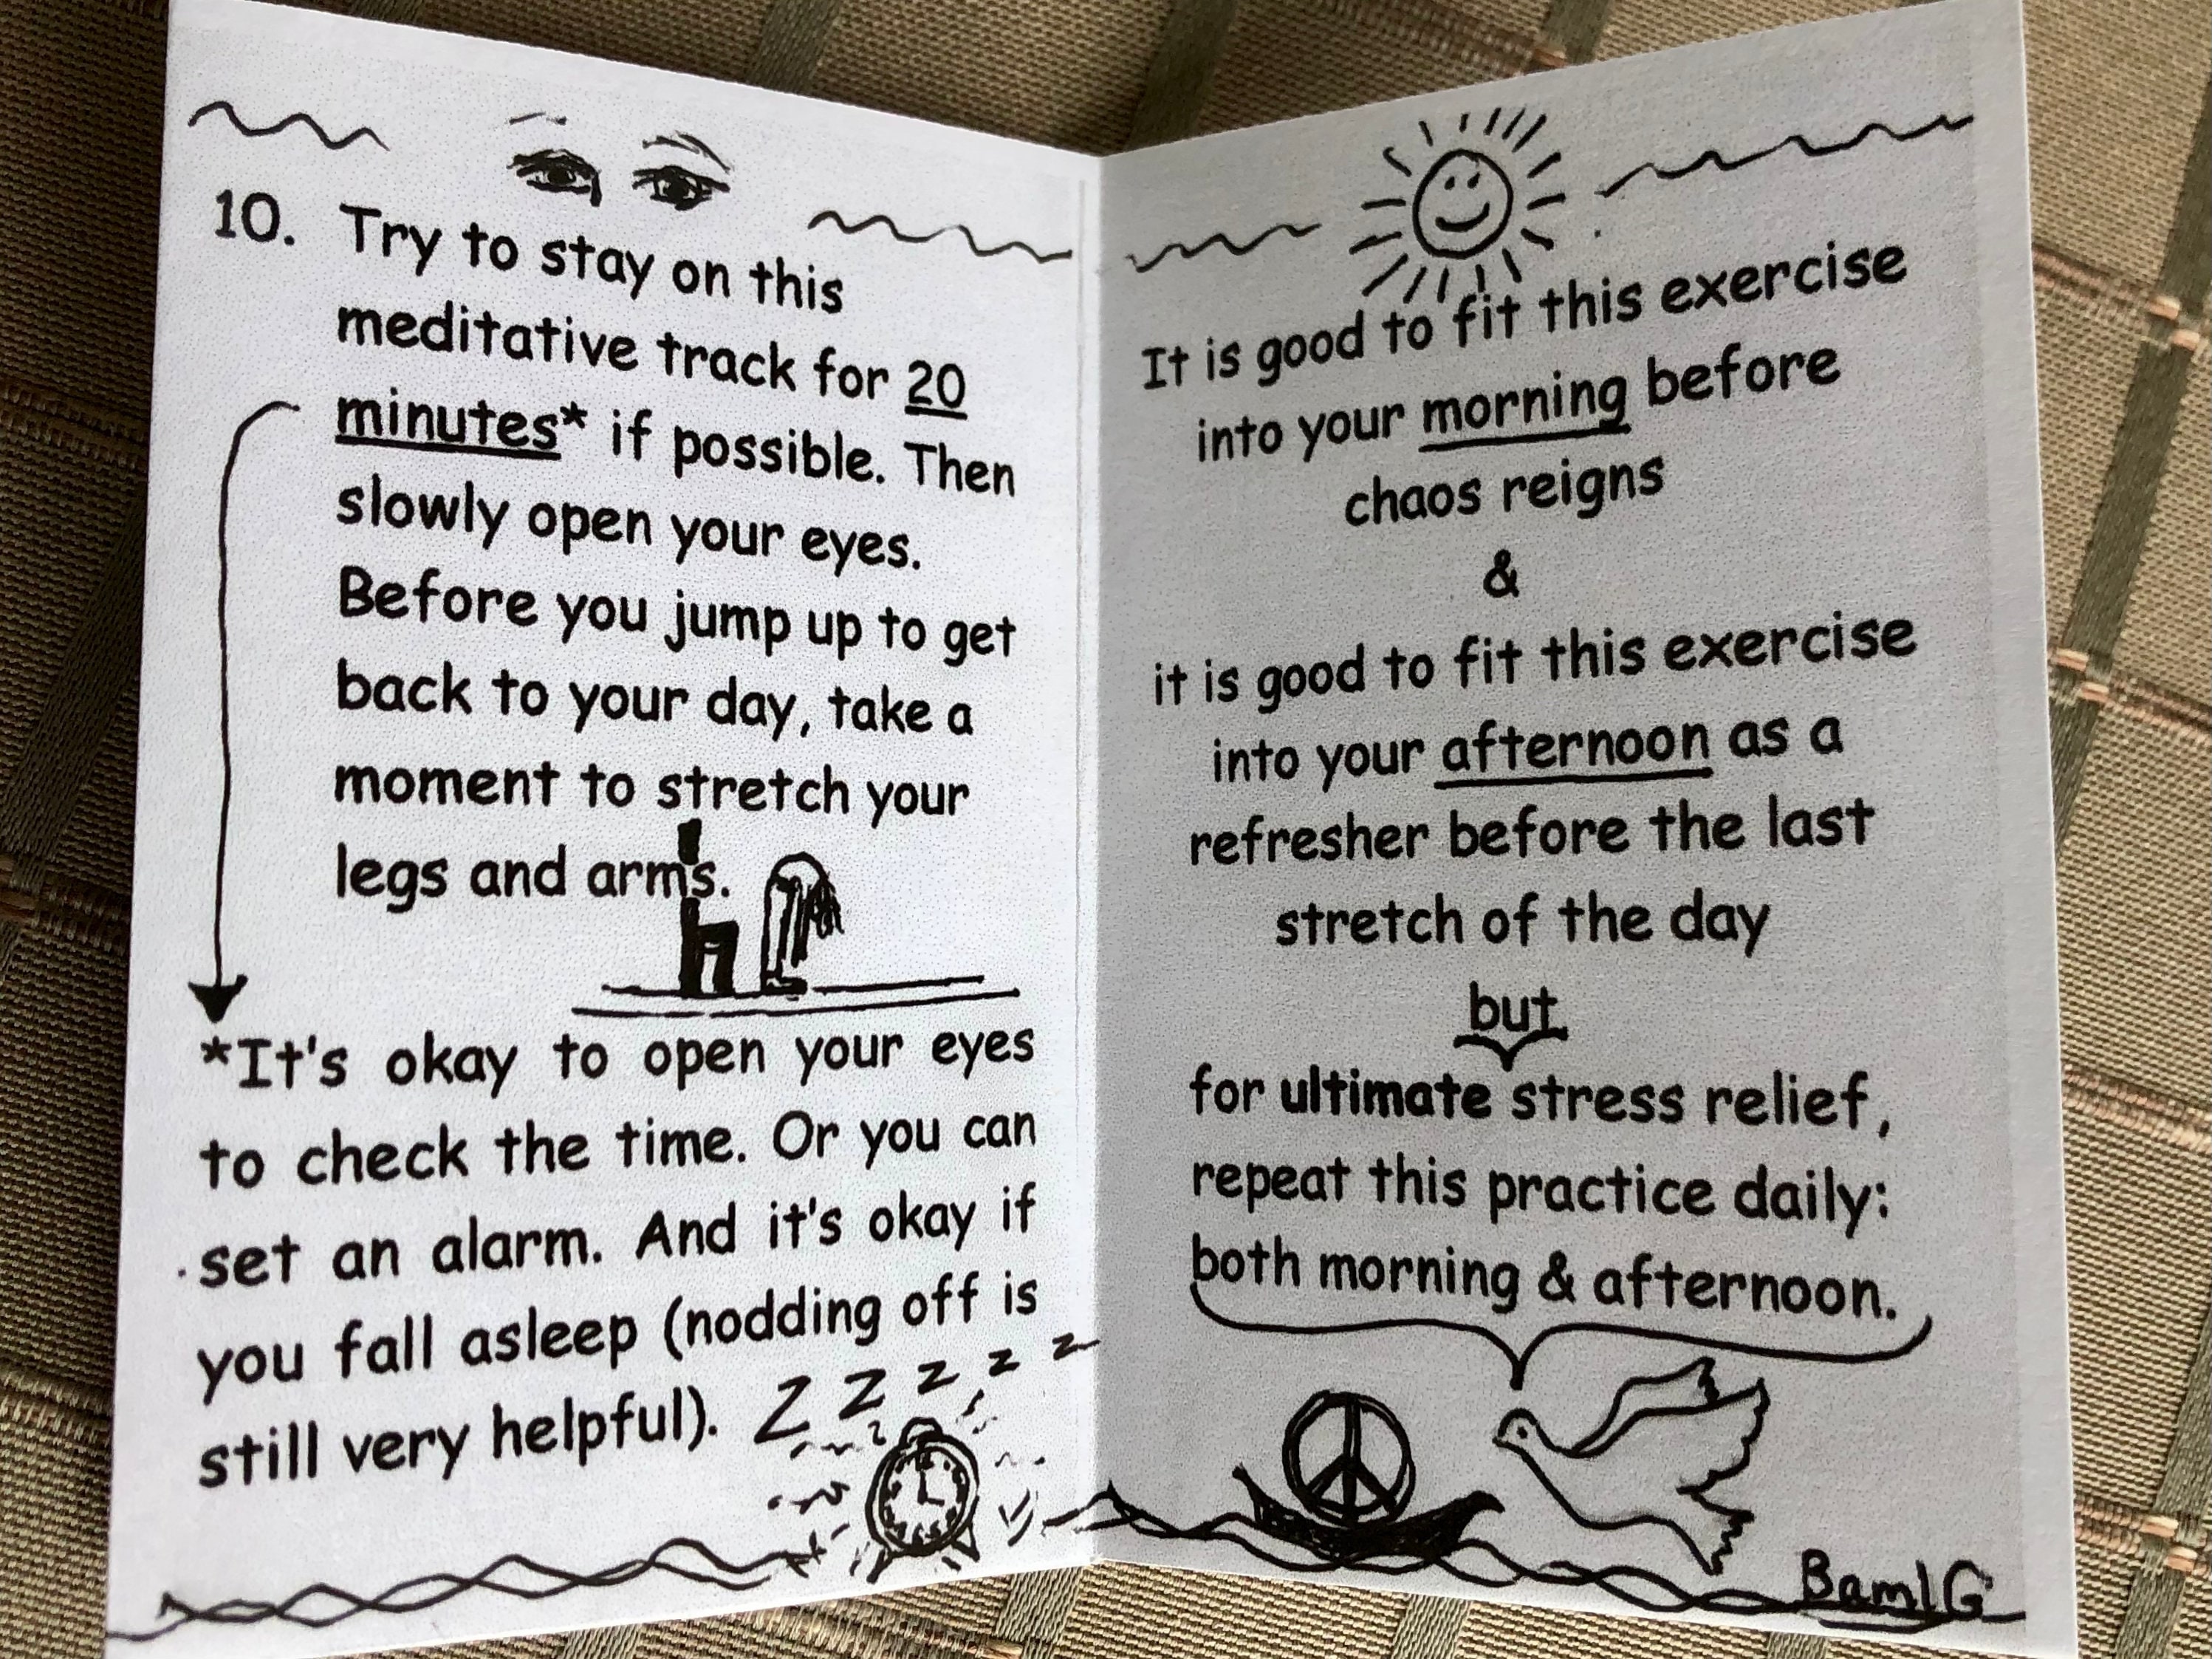 10. Try to stay on this
meditative track for 20
minutes* if possible. Then
slowly open your eyes.
Before you jump up to get
back to your day, take a
moment to stretch your
legs and arms.
*It's okay to open your eyes
to check the time. Or you can
set an alarm. And it's okay if
you fall asleep (nodding off is
still very helpful). Z Z Z Z Z
It is good to fit this exercise
into your morning before
chaos reigns
&
it is good to fit this exercise
into your afternoon as a
refresher before the last
stretch of the day
but
for ultimate stress relief,
repeat this practice daily:
both morning & afternoon.